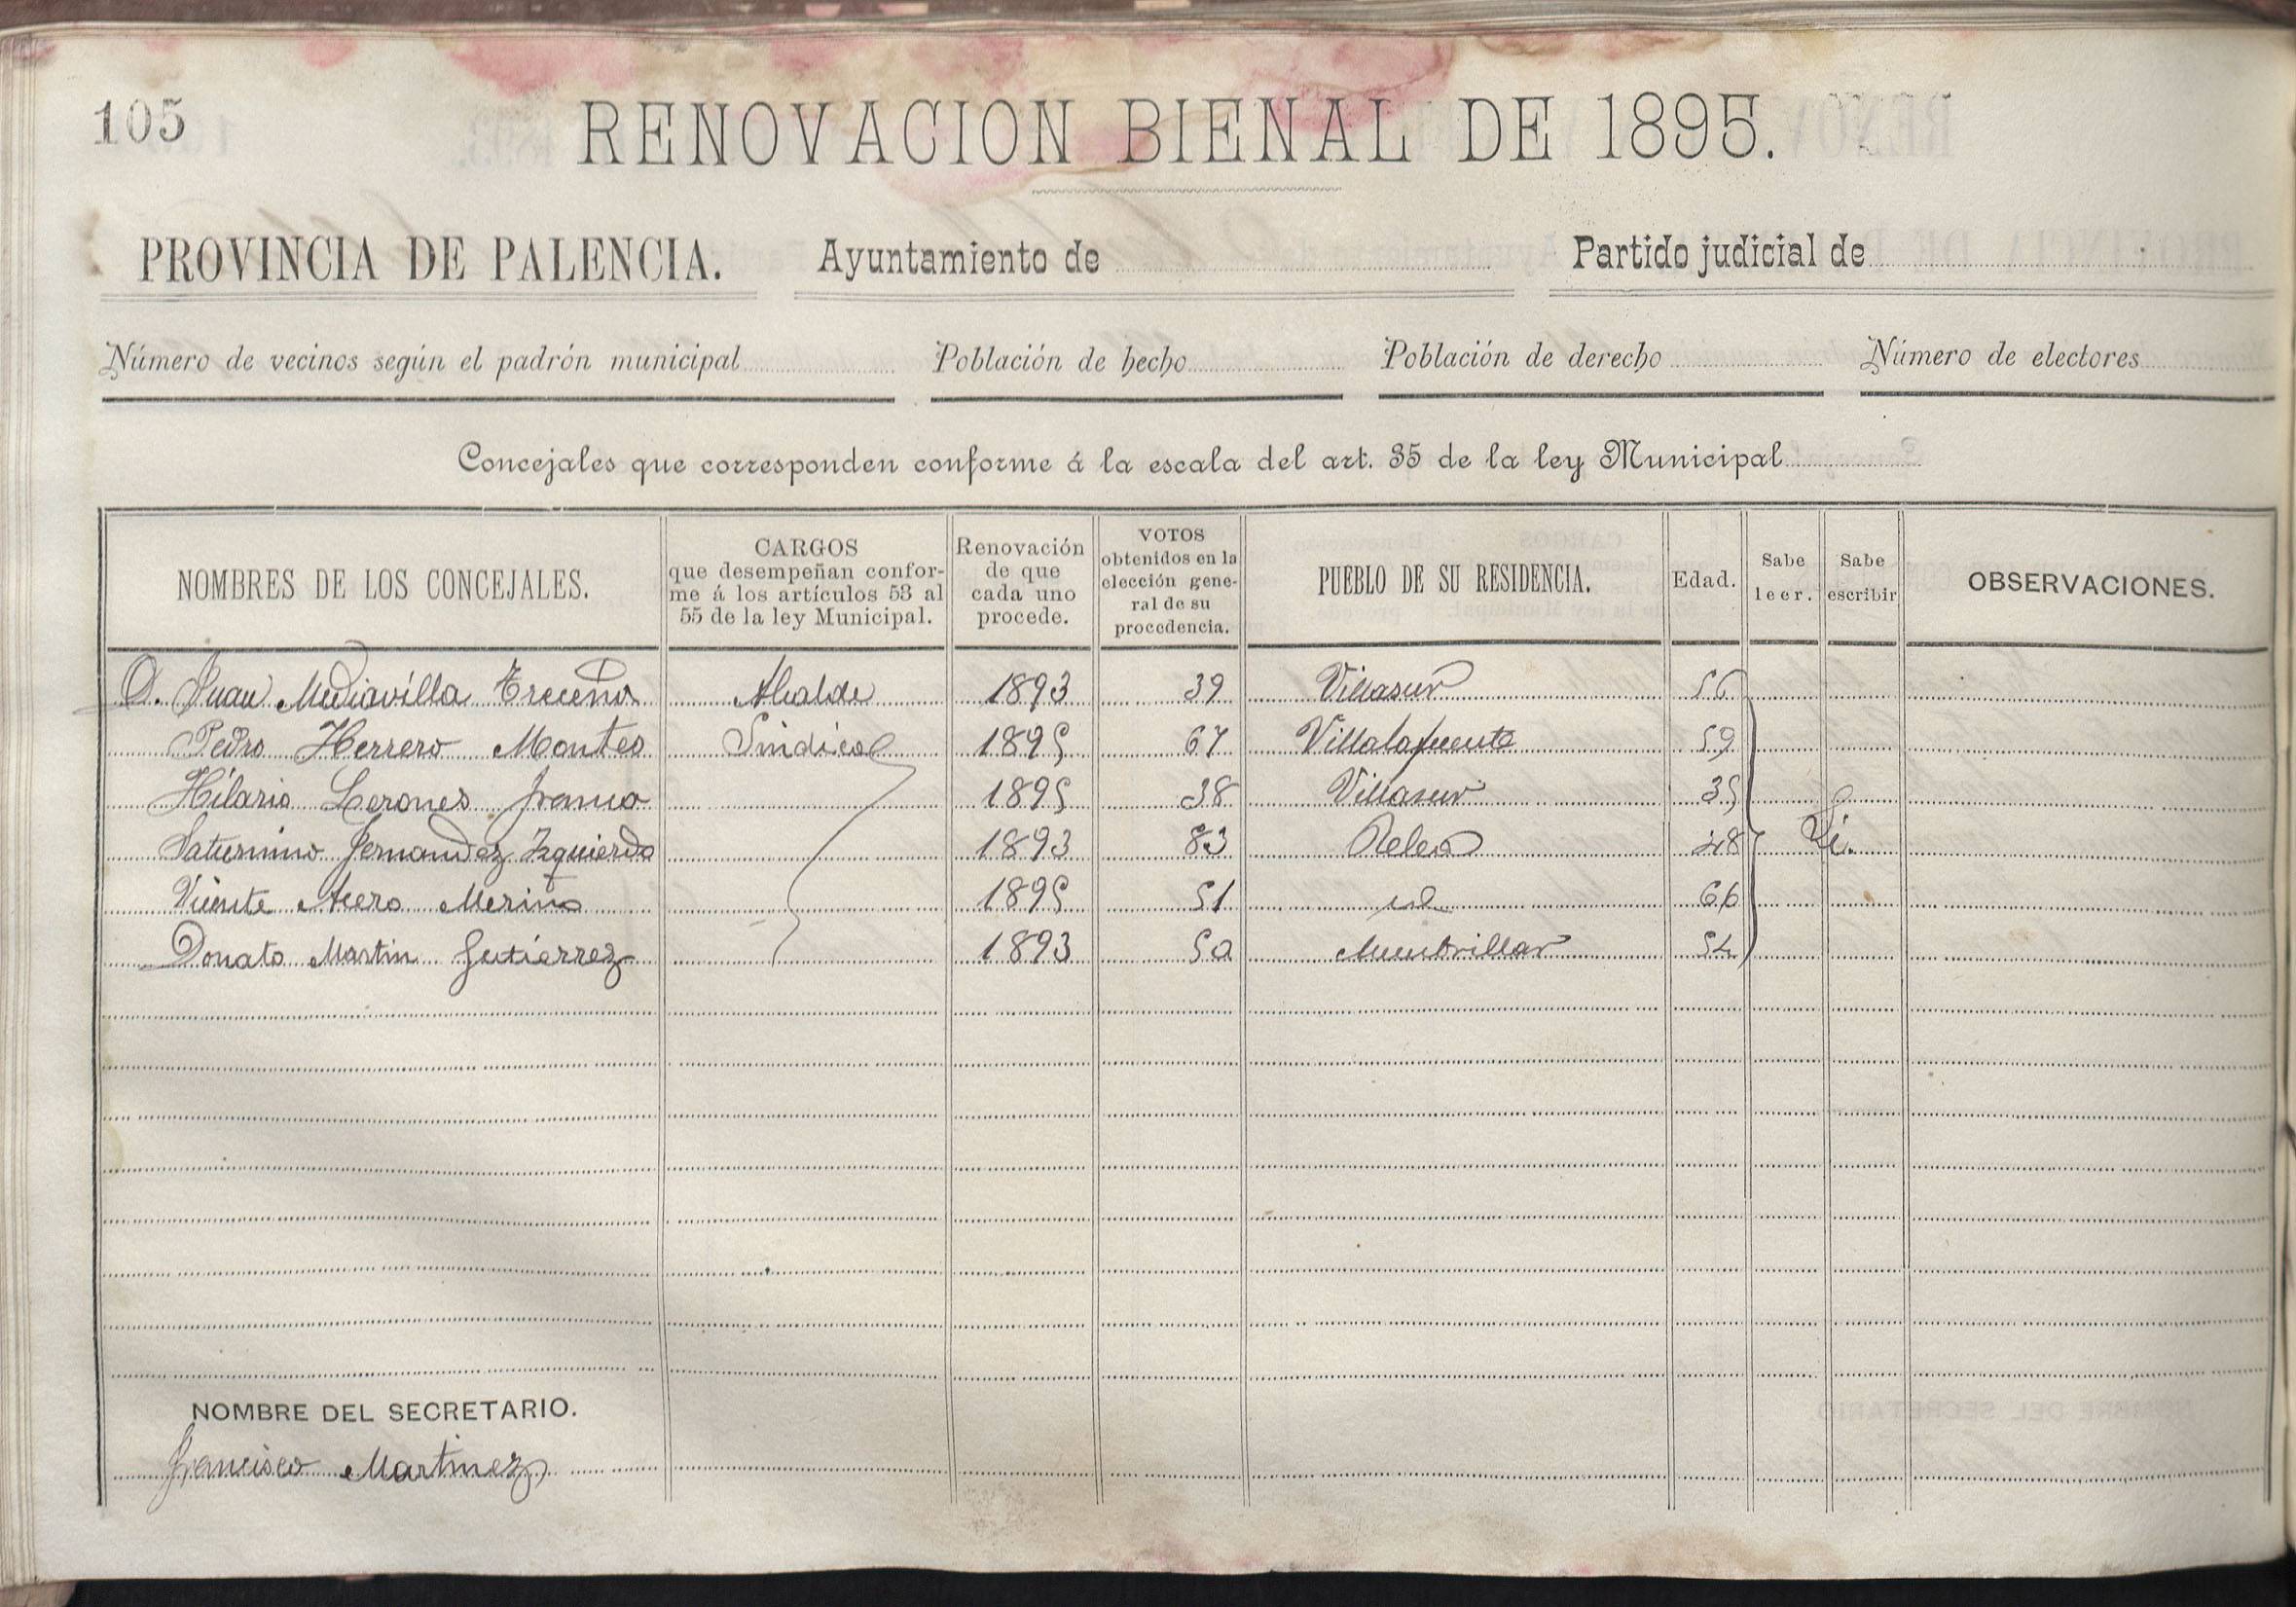 105
RENOVACION BIENAL DE 1895.
PROVINCIA DE PALENCIA. Ayuntamiento de Partido judicial de
Número de vecinos según el padrón municipal Población de hecho Población de derecho Número de electores
Concejales que corresponden conforme á la escala del art. 35 de la ley Municipal
NOMBRES DE LOS CONCEJALES. CARGOS que desempeñan confor- me á los artículos 53 al 55 de la ley Municipal. Renovación de que cada uno procede. VOTOS obtenidos en la elección gene- ral de su procedencia. PUEBLO DE SU RESIDENCIA. Edad. Sabe leer. Sabe escribir OBSERVACIONES.
D. Juan Mediavilla Treceño Alcalde 1893 39 Villasur 56
Pedro Herrero Montes Sindico 1895 67 Villalafuente 59
Hilario Lerones Franco 1895 38 Villasur 35
Saturnino Fernandez Izquierdo 1893 83 Relea 48 Si.
Vicente Acero Merino 1895 51 id 66
Donato Martin Gutierrez 1893 50 Membrillar 54
NOMBRE DEL SECRETARIO.
Francisco Martinez